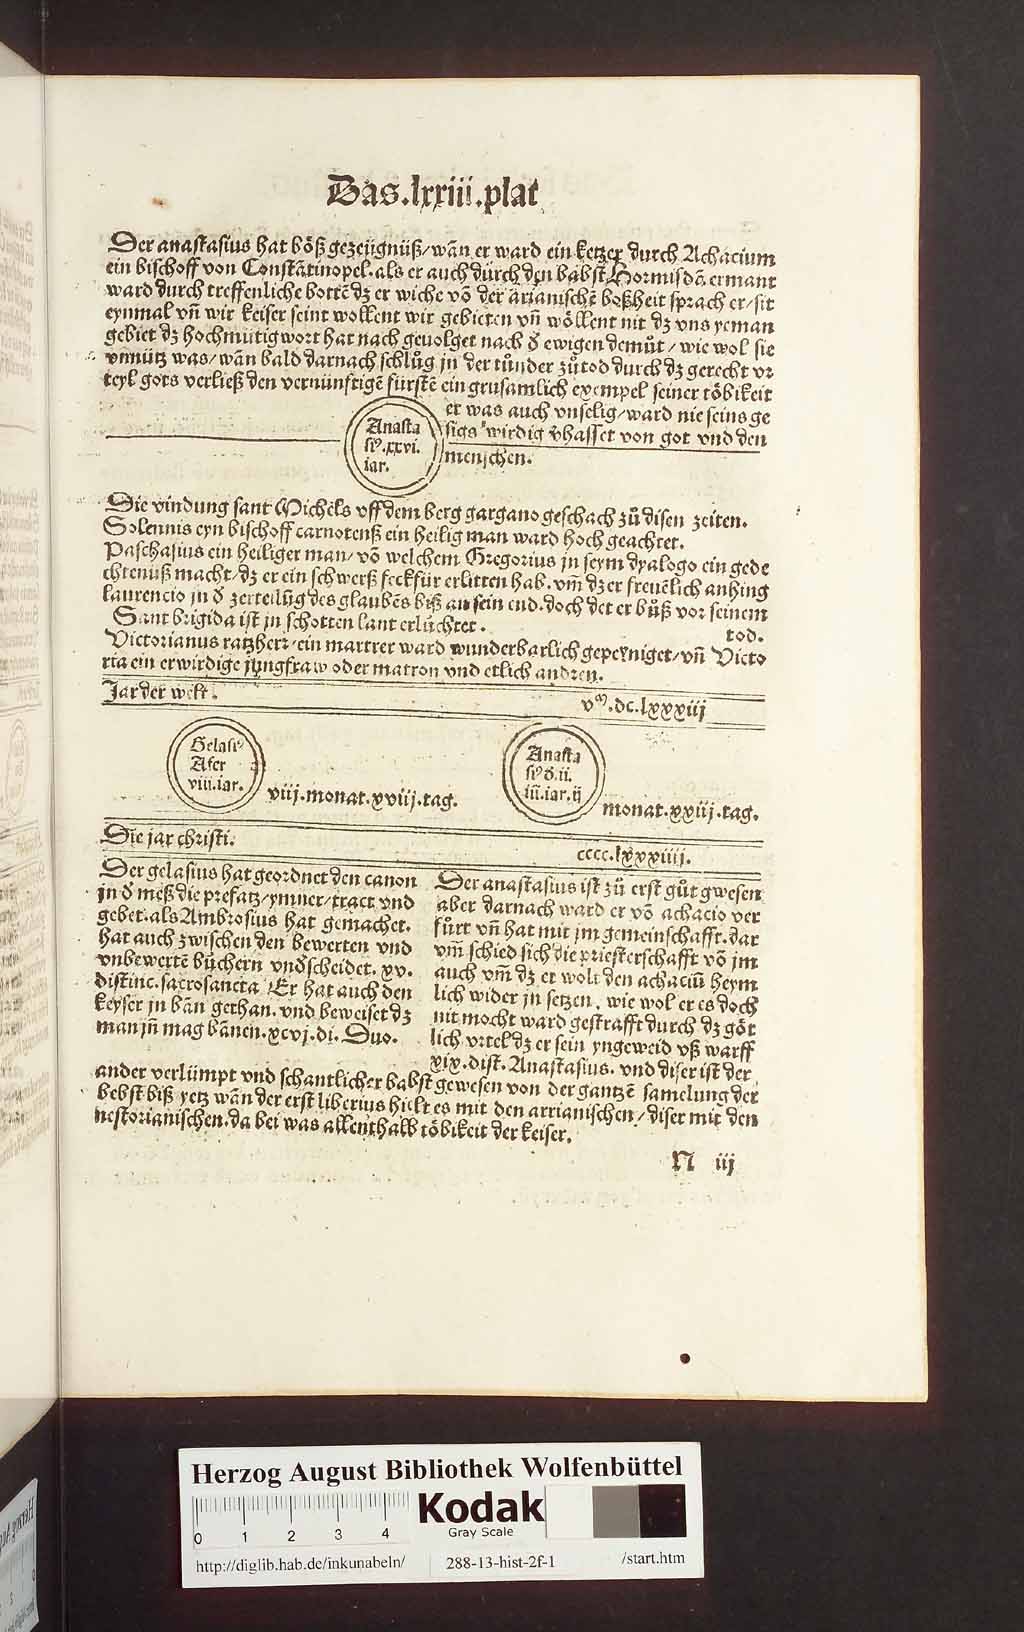 Das.lxxiii.plat
Der anastasius hat böß gezeügnüß/wañ er ward ein ketzer durch Achacium
ein bischoff von Constātinopel.als er auch durch den babst Hormisdā ermant
ward durch treffenliche bottē dz er wiche vō der arianischē boßheit sprach er/sit
eynmal vñ wir keiser seint wollent wir gebieten vñ wöllent nit dz vns yeman
gebiet dz hochmütig wort hat nach geuolget nach d̕ ewigen demůt/wie wol sie
vnnütz was/wān bald darnach schlůg jn der tůnder zů tod durch dz gerecht vr
teyl gots verließ den vernünftigē fürstē ein grusamlich exempel seiner töbikeit
er was auch vnselig/ward nie seins ge
sigs wirdig v̕hasset von got vnd den
menschen.
Anasta
siꝰ.xxvi.
iar.
Die vindung sant Michels vff dem berg gargano geschach zů disen zeiten.
Solennis eyn bischoff carnotenß ein heilig man ward hoch geachtet.
Paschasius ein heiliger man/vō welchem Gregorius jn seym dyalogo ein gede
chtenüß macht/dz er ein schwerß feckfür erlitten hab.vm̄ dz er freuēlich anhing
laurencio jn d̕ zerteilūg des glaubēs biß an sein end.doch det er bůß vor seinem
tod.
Sant brigida ist jn schotten lant erlüchtet.
Victorianus ratzherr/ein martrer ward wunderbarlich gepeyniget/vñ Victo
ria ein erwirdige jungfraw oder matron vnd etlich andren.
Jar der welt.
vᵐ.dc.lxxxiij
Gelasiꝰ
Afer
viii.iar.
viij.monat.xviij.tag.
Anasta
siꝰ d̕.ii.
iii.iar.ij
monat.xxiij.tag.
Die jar christi.
cccc.lxxxiiij.
Der gelasius hat geordnet den canon
jn d̕ meß die prefatz/ymner/tract vnd
gebet.als Ambrosius hat gemachet.
hat auch zwischen den bewerten vnd
vnbewertē büchern vnd̕scheidet.xv.
distinc.sacrosancta Er hat auch den
keyser jn bān gethan.vnd beweiset dz
man jñ mag bānen.xcvj.di.Duo.
Der anastasius ist zů erst gůt gwesen
aber darnach ward er vō achacio ver
fürt vñ hat mit jm gemeinschafft.dar
vm̄ schied sich die priesterschafft vō jm
auch vm̄ dz er wolt den achaciū heym
lich wider jn setzen.wie wol er es doch
nit mocht ward gestrafft durch dz göt
lich vrtel dz er sein yngeweid vß warff
xix.dist.Anastasius.vnd diser ist der
ander verlümpt vnd schantlicher babst gewesen von der gantzē samelung der
bebst biß yetz wān der erst liberius hielt es mit den arrianischen/diser mit den
nestorianischen.da bei was allenthalb töbikeit der keiser.
N iij
Herzog August Bibliothek Wolfenbüttel
0 1 2 3 4
Kodak
Gray Scale
http://diglib.hab.de/inkunabeln/ 288-13-hist-2f-1 /start.htm